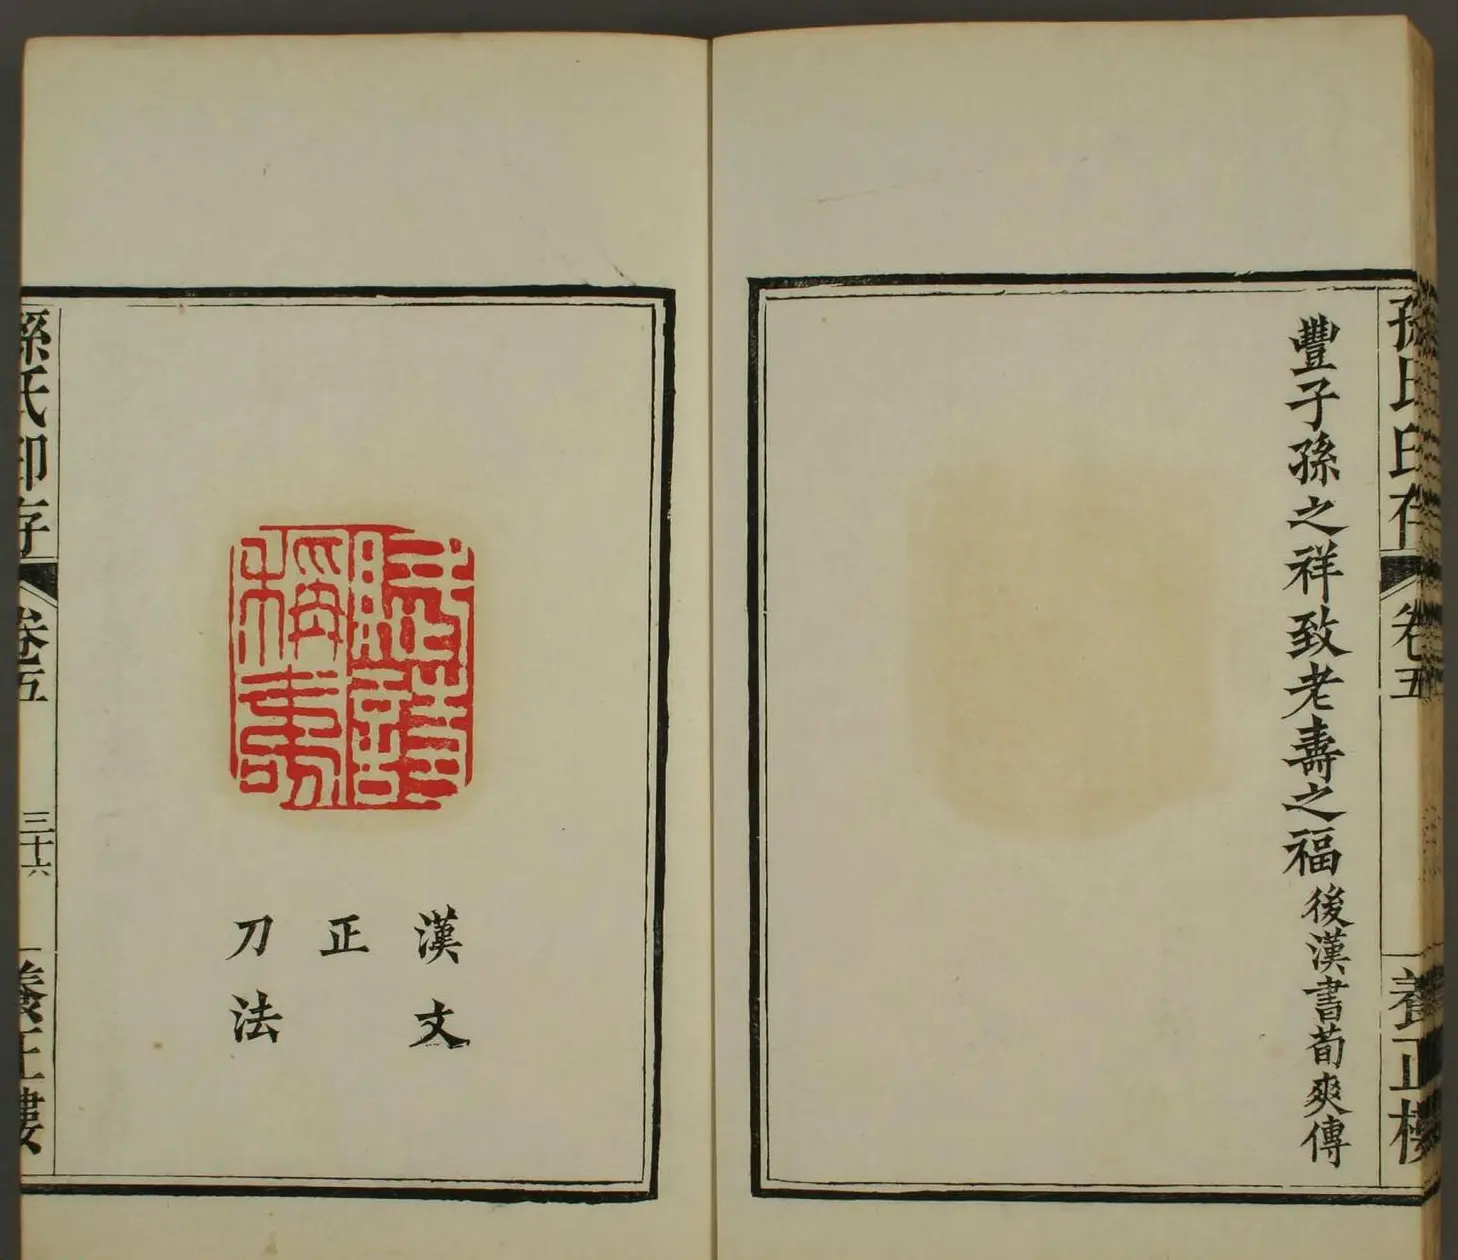 孫氏印存
卷五
養正樓
豐子孫之祥致老壽之福後漢書荀爽傳
賦詩
稱壽
漢文
正
刀法
孫氏印存
卷五
三十六
養正樓